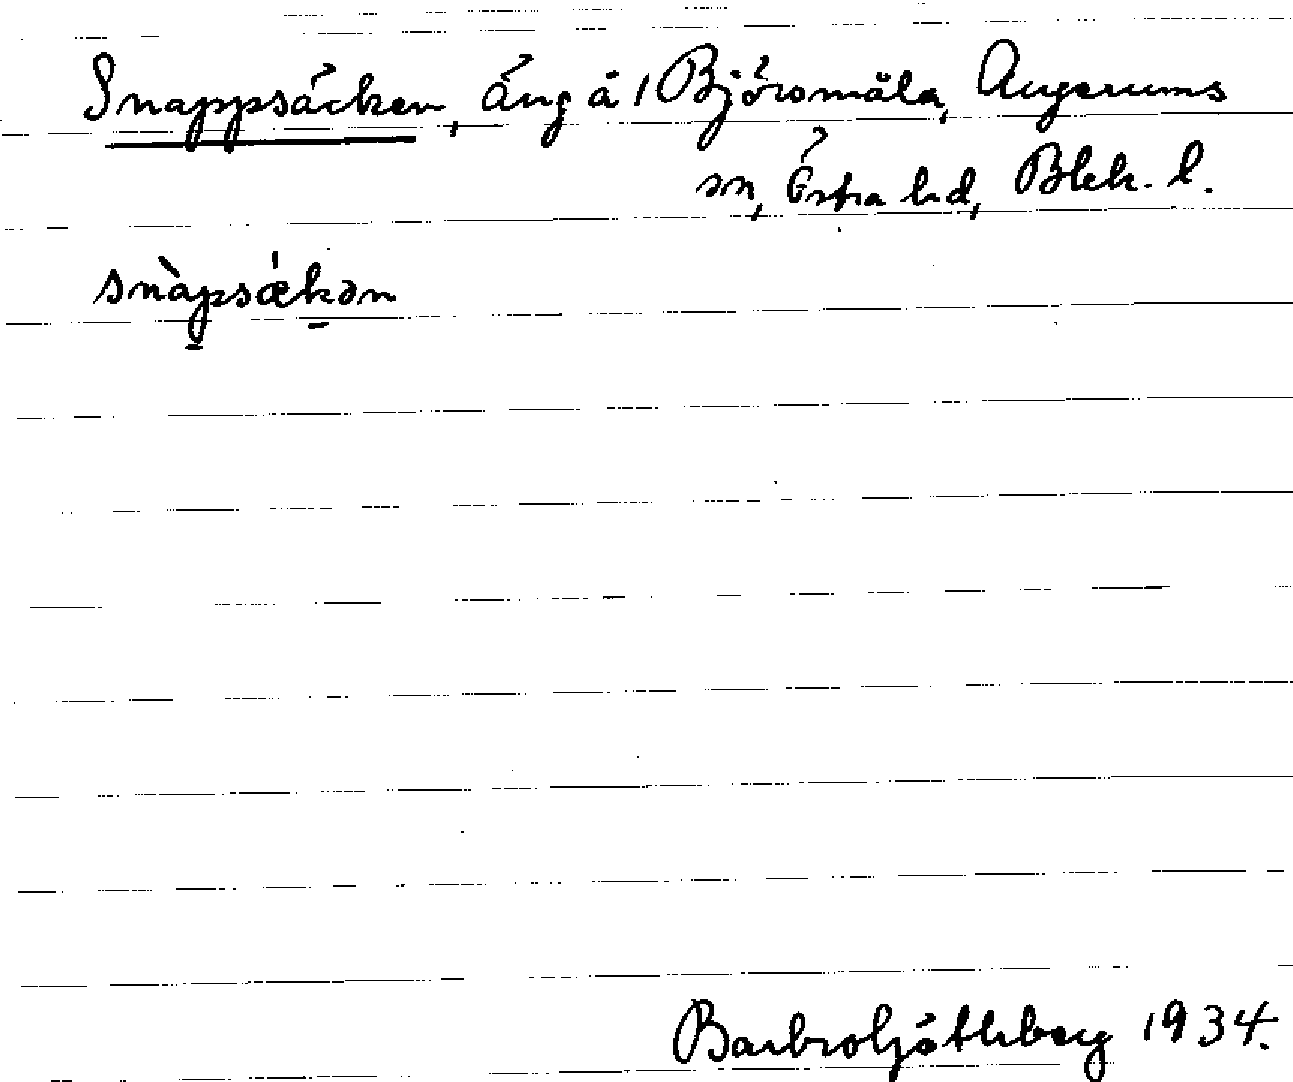 Snappsäcken, Äng å 1 Björsmåla, Augerums
sn, Östra hd, Blek. l.
snàpsǽkən
Barbro Ljóthberg 1934.